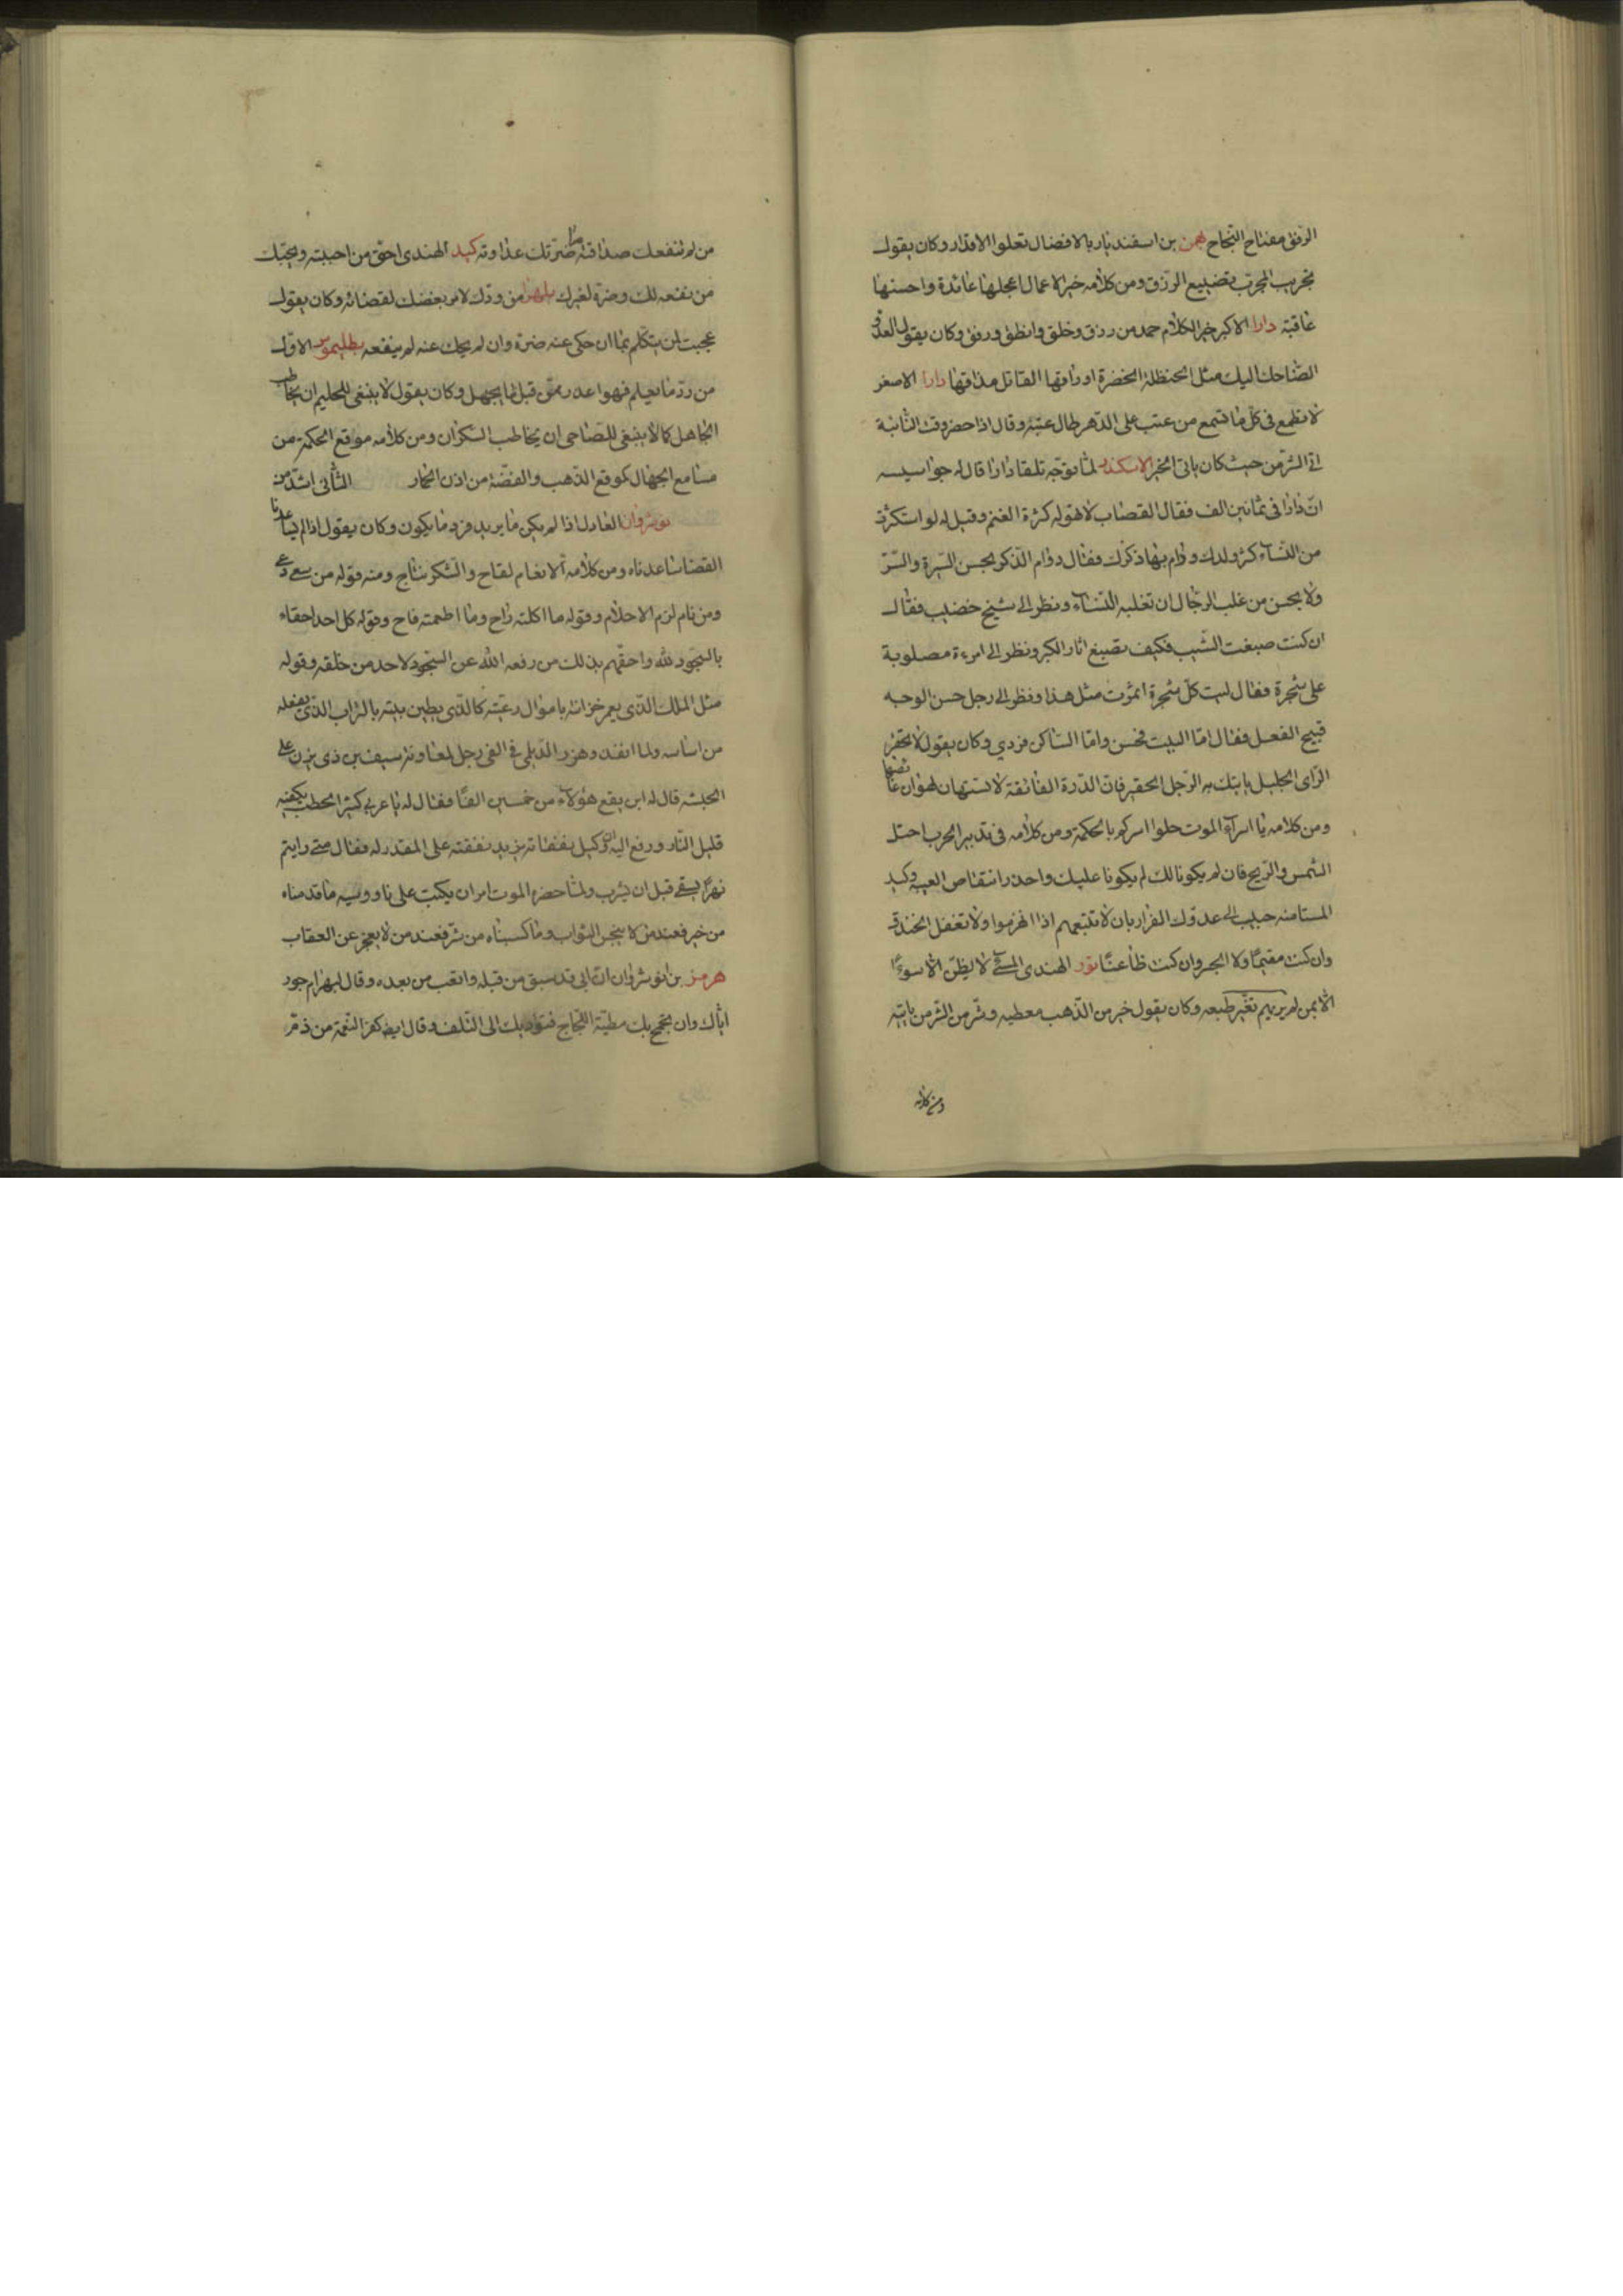 الرفق مفتاح النجاح بهمن بن اسفنديار بالافضال تعلوا الاقدار وكان يقول
تجريب المجرّب تضييع الرزق ومن كلامه خير الاعمال اعجلها عائدة واحسنها
عاقبة دارا الاكبر خير الكلام حمد من رزق وخلق وانطق ورفق وكان يقول العدو
الضاحك اليك مثل الحنظلة الخضرة اوراقها القاتل مذاقها دارا الاصغر
لا تطمع فى كلّ ما تسمع من عتب على الدّهر طال عتبه وقال اذا حضر وقت الثانية
اتى الشرّ من حيث كان ياتى الخير الاسكندر لمّا توجّه تلقا دارا قال له جواسيسه
انّ دارا فى ثمانين الف فقال القصاب لا تهوله كثرة الغنم وقيل له لو استكثرت
من النّساء كثر ولدك ودام بها ذكرك فقال دوام الذكر بحسن السيرة والسّرّ
ولا يحسن من غلب الرجال ان تغلبه النّساء ونظر الى شيخ خضيب فقال
ان كنت صبغت الشّيب فكيف تصبغ اثار الكبر ونظر الى امرءة مصلوبة
على شجرة فقال ليت كلّ شجرة اثمرت مثل هذا ونظر الى رجل حسن الوجه
قبيح الفعل فقال امّا البيت فحسن وامّا السّاكن فردي وكان يقول لا تحقر
الرّاى الجليل ياتيك به الرّجل الحقير فان الدّرة الفائقة لا تستهان لهوان غائصها
ومن كلامه يا اسرآء الموت حلوا اسركم بالحكمة ومن كلامه فى تدبير الحرب احتل
الشمس والرّيح فان لم يكونا لك لم يكونا عليك واحذر انتقاص العبية وكيد
المستامنه حبب الى عدوّك الفرار بان لا تتبعهم اذا انهزموا ولا تغفل الخندق
وان كنت مقيمًا ولا الحجر وان كنت ظاعنًا فور الهندى المسئ لا يظنّ الّا سوءًا
الّا بمن لم يريهم تغير طبعه وكان يقول خير من الذّهب معطيه وشرّ من الشّر من ياتيه
ومن كلامه
من لم تنفعك صداقته ما ضرّتك عداوته كيد الهندى احقّ من احببته ويحبّك
من نفعه لك وضرّه لغيرك بلهرا من ودّك لامر بغضك لقضائه وكان يقول
عجبت لمن يتكلّم بما ان حكى عنه ضرّه وان لم يحك عنه لم ينفعه بطليموس الاوّل
من ردّ ما يعلم فهوا عذر ممّن قبل ما يجهل وكان يقول لا ينبغى للحليم ان يخاطب
الجاهل كما لا ينبغى للصّاحى ان يخاطب السّكران ومن كلامه موقع الحكمة من
مسامع الجهّال كموقع الذّهب والفضّة من اذن الحمار الثّانى اشدّ من
نوشروان العادل اذا لم يكن ما يريد فرد ما يكون وكان يقول اذا لم يساعدنا
القضا ساعدناه ومن كلامه الانعام لقاح والشّكر نتاج ومنه قوله من سعى رعى
ومن نام لزم الاحلام وقوله ما اكلته راح وما اطعمته فاح وقوله كل احد احقاء
بالسّجود للّه واحقّهم بذلك من رفعه الله عن السّجود لاحد من خلقه وقوله
مثل الملك الّذى يعمر خزانته باموال رعيّته كالّذى يطين بيته بالتراب الذى يقتلعه
من اساسه ولما انفذ وهزر الدّيلى فى الفى رجل لمعاونة سيف بن ذى يزن على
الحبشه قال له اين يقع هؤلاء من خمسين الفًا فقال له يا عربى كثير الحطب يكفيه
قليل النّار ورفع اليه انّ وكيل نفقاته يزيد نفقته على المقدر له فقال متى رايتم
نهرًا يسقى قبل ان يشرب ولمّا حضره الموت امر ان يكتب على ناووسه ما قدمناه
من خير فعند من لا يبخس الثواب وما كسبناه من شرّ فعند من لا يعجز عن العقاب
هرمز بن نوشروان انّ ابى قد سبق من قبله واتعب من بعده وقال لبهرام جور
ايّاك وان تجمح بك مطيّة اللّجاج فتؤديك الى التّلف وقال ايضا كفر النّعمة من ذمّ